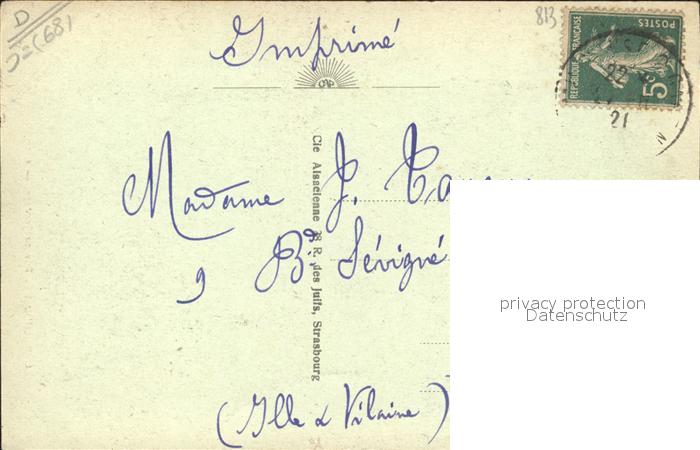 D
813
Imprimé
POSTES
REPUBLIQUE FRANÇAISE
5c
22
21
CAP
Cie Alsacienne 38 R. des Juifs, Strasbourg
Madame J.
9 Bd Sévigné
privacy protection
Datenschutz
(Ille & Vilaine)